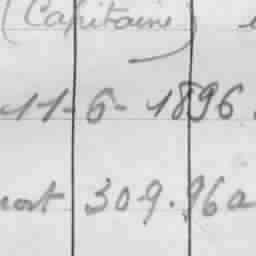 (Capitaine)
11-6-1896.
mort 30-9.96 a